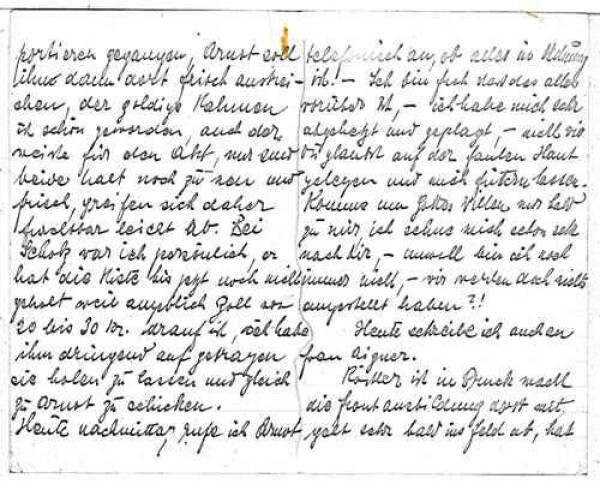 portieren gegangen, Arnst soll
ihm dann dort frisch anstrei-
chen, der goldige Rahmen
ist schön geworden, auch der
weiße für den Akt, nur sind
beide halt noch zu neu und
frisch, greifen sich daher
furchtbar leicht ab. Bei
Scholz war ich persönlich, er
hat die Kiste bis jetzt noch nicht
geholt weil angeblich Zoll von
20 bis 30 Kr. drauf ist, ich habe
ihm dringend auf getragen
sie holen zu lassen und gleich
zu Arnst zu schicken.
Heute nachmittag rufe ich Arnst
telefonisch an, ob alles in Ordnung
ist! – Ich bin froh dass das alles
vorüber ist, – ich habe mich sehr
abgehetzt und geplagt, – weil
du glaubst auf der faulen Haut
gelegen und mich füttern lassen.
Komme um Gottes Willen nur bald
zu mir, ich sehne mich schon sehr
nach dir, – unwohl bin ich noch
immer nicht, – wir werden doch nichts
angestellt haben?!
Heute schreibe ich auch an
Frau Aigner.
Rössler ist in Bruck macht
die Frontausbildung dort mit,
geht sehr bald ins Feld ab, hat